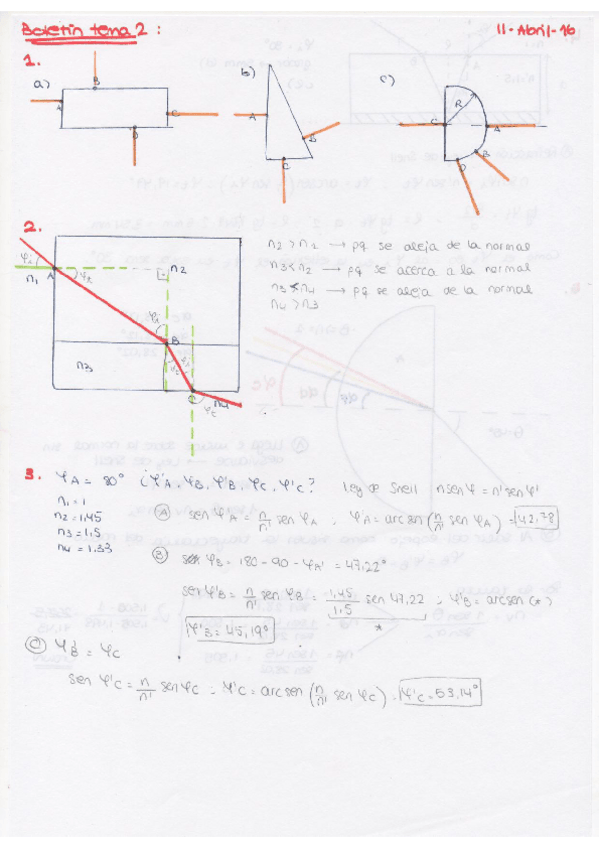 Boletín tema 2 :
11-Abril-16
1.
a)
b)
c)
B
A
C
D
A
B
C
R
C
A
B
D
2.
φi
A
n1
φ2
n2
φi
B
n3
C
n4
φc
n2 > n1 → pq se aleja de la normal
n3 < n2 → pq se acerca a la normal
n3 < n4 → pq se aleja de la normal
n4 > n3
3. φA = 80° ¿φ'A, φB, φ'B, φC, φ'C? Ley de Snell n sen φ = n' sen φ'
n1 = 1
n2 = 1,45
n3 = 1,5
n4 = 1.33
A sen φ'A = n/n' sen φA ; φ'A = arc sen (n/n' sen φA) = 42,78
B φB = 180 - 90 - φA' = 47,22°
sen φ'B = n/n' sen φB = 1,45/1,5 sen 47,22 ; φ'B = arcsen (*)
*
φ'B = 45,19°
C φ'B = φC
sen φ'C = n/n' sen φC ; φ'C = arc sen (n/n' sen φC) = φ'C = 53,14°